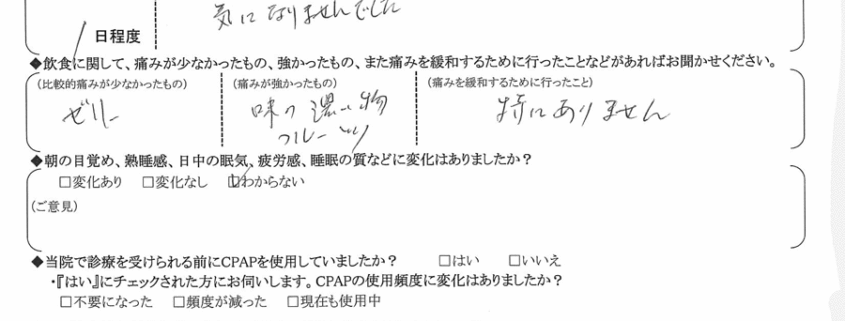 気になりませんでした
日程度
◆飲食に関して、痛みが少なかったもの、強かったもの、また痛みを緩和するために行ったことなどがあればお聞かせください。
(比較的痛みが少なかったもの) (痛みが強かったもの) (痛みを緩和するために行ったこと)
ゼリー 味の濃い物 特にありません
フルーツ
◆朝の目覚め、熟睡感、日中の眠気、疲労感、睡眠の質などに変化はありましたか？
□変化あり □変化なし ☑わからない
(ご意見)
◆当院で診療を受けられる前にCPAPを使用していましたか？ □はい □いいえ
・『はい』にチェックされた方にお伺いします。CPAPの使用頻度に変化はありましたか？
□不要になった □頻度が減った □現在も使用中